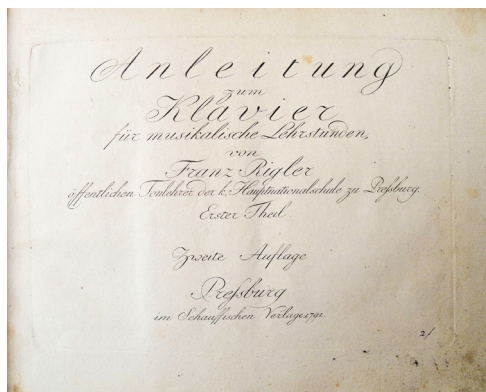 Anleitung
zum
Klavier
für musikalische Lehrstunden,
von
Franz Rigler
öffentlichen Tonlehrer der k. Hauptnationalschule zu Preßburg.
Erster Theil
Zweite Auflage
Preßburg
im Schauffischen Verlage 1791.